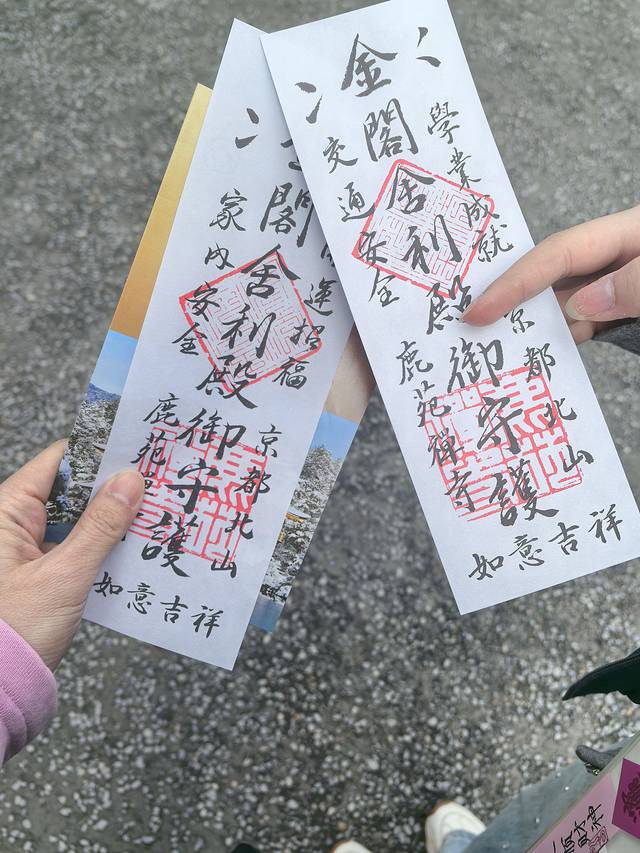 運招福
京都北山
閣舎利殿御守護
家内安全
鹿苑
如意吉祥
學業成就
京都北山
金閣舎利殿御守護
交通安全
鹿苑禅寺
如意吉祥